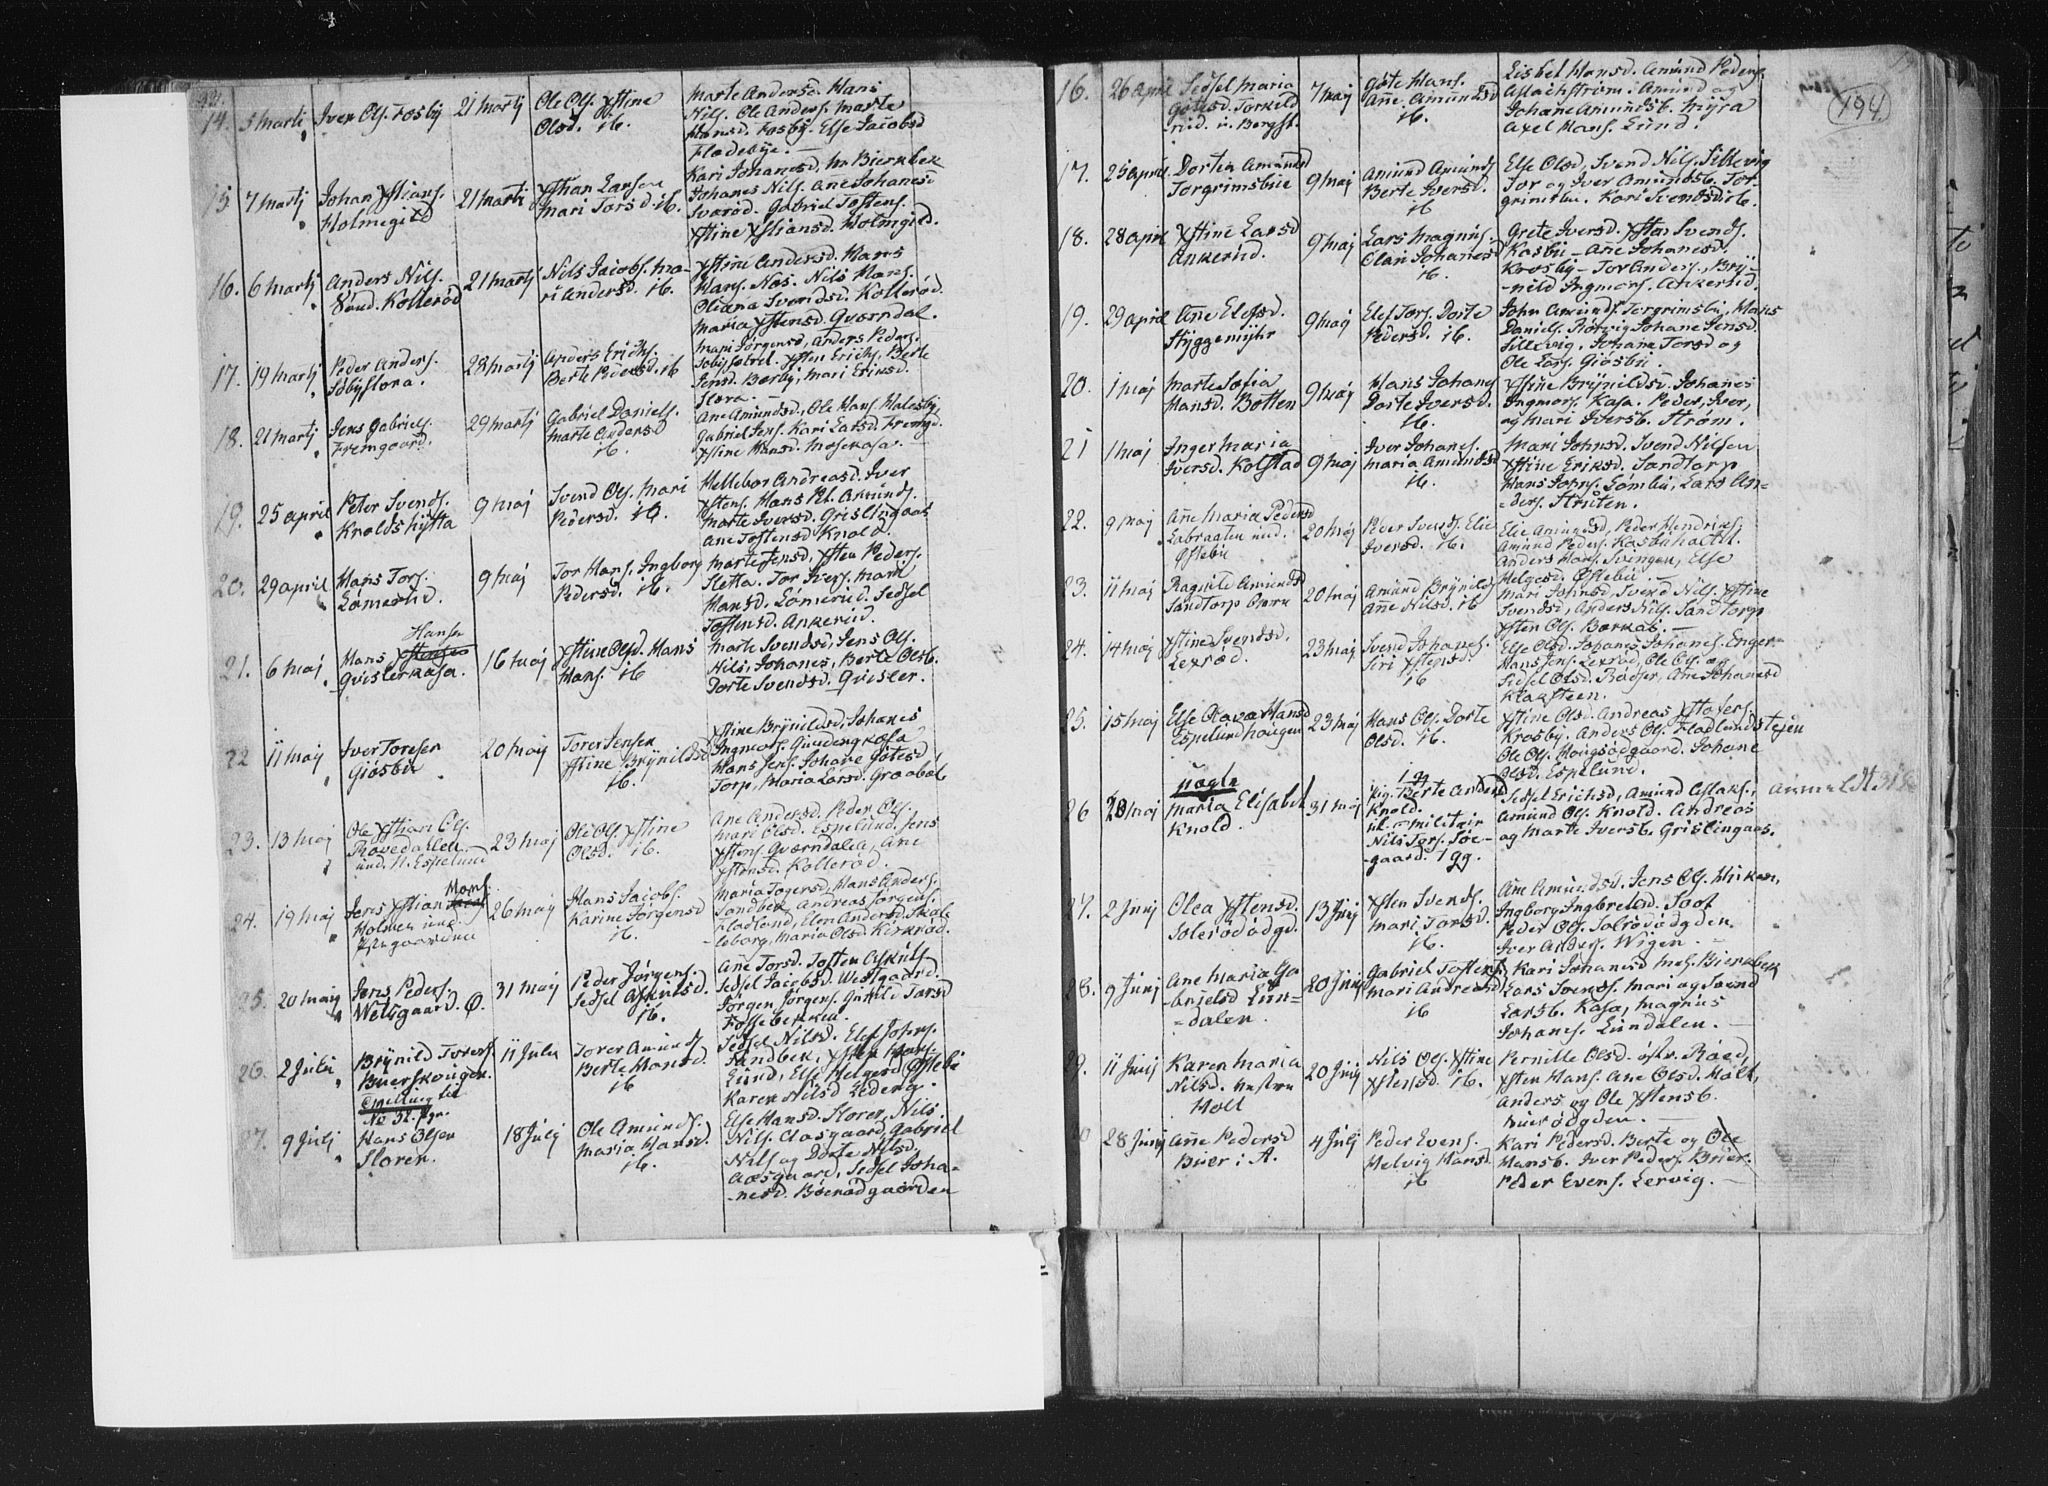 14.
5 Martij
Iver Ols. Fosbÿ
21 Martij
Ole Ols. Xstine
Olsd. 16.
Marte Andersd. Hans
Nils. Ole Anders. Marte
Hansd. Fosbÿ. Else Jacobsd
Fladebÿe. —
15
7 Martij
Johan Xstians.
Holmegild
21 Martij
Xsthan Larsen
Mari Torsd. 16.
Kari Johanesd. Bierkbek
Johanes Nils. Ane Johanesd
Svarød. Gabriel Tostens.
Xstine Xstiansd. Holmgild.
16.
6 Martij
Anders Nils.
Kollerød
21 Martij
Nils Jacobs. Ma-
ri Andersd. 16.
Xstine Andersd. Hans
Hans. Nils Hans.
Oliana Svendsd. Kollerød.
Maria Xstensd. Qværndal.
17.
19 Martij
Peder Anders.
28 Martij
Anders Erichs.
Berte Pedersd. 16
Mari Jörgensd, Anders Peders.
Xsten Erichs. Berte
Jensd. Berbÿ, Mari Eriksd.
Flora. —
18.
21 Martij
Jens Gabriels.
Fremgaard.
29 Martij
Gabriel Daniels.
Marte Andersd
16.
Ane Amundsd, Ole Hans.
Gabriel Jens. Kari Larsd. Fremgd.
Xstine Hansd. Mosekasa. —
19.
25 April
Peter Svends.
Knolds hÿtta
9 Maj
Svend Ols. Mari
Pedersd. 16.
Hellebor Andreasd. Iver
Xstens. Hans Pet. Amunds.
Marte Iversd. Grislingaas
Ane Tostensd Knold.
20.
29 April
Hans Tors.
Lömerud.
9 Maj
Tor Hans. Ingborg
Pedersd. 16.
Marte Jensd. Xsten Peders.
Sletta. Tor Ivers. Marit
Hansd. Lömerud. Sedsel
Tostensd. Ankerud.
21.
6 Maj
Hansen
Hans Xstensen
Qvislerkasa.
16 Maj
Xstine Olsd. Hans
Hans. 16
Marte Svendsd, Jens Ols.
Nils, Johanes, Berte Olsb.
Dorte Svendsd. Qvisler.
22
11 Maj
Iver Toresen
Giösbu
20 Maj
Torer Jensen
Xstine Brÿnildsd
16.
Xstine Brÿnildsd, Johanes
Ingmors. Guudengkasa
Hans Jens. Johane Götesd
Torp, Maria Larsd. Graabøl
23.
13 Maj
Ole Xsthan Ols.
Ravedalen
und. N. Espelund
23 Maj
Ole Ols. Xstine
Olsd. 16.
Ane Andersd. Peder Ols.
Mari Olsd. Espelund. Jens
Xstens. Qværndalen, Ane
Xstensd. Kollerød.
24.
19 Maj
Hans.
Jens Xsthan
Holmen und.
26 Maj
Hans Jacobs.
Karine Jörgensd
16.
Maria Togersd, Hans Anders.
Sandbek, Andreas Jörgens.
Fladlund, Elen Andersd. Skale
leborg, Maria Olsd Kirkrød.
25.
20 Maij
Jens Peders.
Westgaard. O.
31 Maj
Peder Jörgens.
Sedsel Askilsd.
16.
Ane Torsd. Tosten Askils.
Sedsel Jacobsd. Westgaard.
Jörgen Jörgens. Gunild Torsd
Fossebekken.
26.
2 Juli
Brÿnild Torers.
Buerskougen.
Tvilling til
No 32. Pgn.
11 Juli
Torer Amunds
Berte Hansd.
16
Sedsel Nilsd. Elef Johns.
Sandbek, Xsten Hans.
Lund, Else Helgesd Östebÿ
Karen Nilsd Lederg.
27.
9 Julj
Hans Olsen
Floren.
18 Julj
Ole Amunds.
Maria Hansd.
16.
Else Hansd. Floren, Nils
Nils. Aasgaard, Gabriel
Nils og Dorte Nilsd.
Aasgaard, Sedsel Joha-
-nesd. Bøerødgaarden
194
16.
26 April
Sedsel Maria
Götesd. Torkild
-rud. u. Bergst.
7 Maj
Göte Hans.
Ane Amundsd
16.
Lisbet Hansd. Amund Peders.
Aslachstrøm. Amund og
Johane Amundsb. Mÿra
Axel Hans. Lund.
17.
25 April
Dortea Amundsd
Torgrimsbue
9 Maj
Amund Amunds
Berte Iversd.
16
Else Olsd, Svend Nils. Sillevig
Tor og Iver Amundsb. Tor-
grimsbu. Kari Svendsd ib.
18.
28 April
Xstine Larsd
Ankerud.
9 Maj
Lars Magnus.
Olau Johanesd
16.
Grete Iversd. Xsten Svends.
Kasbu — Ane Johanesd.
Krosbÿ — Tor Anders., Brÿ-
-nild Ingmors. Ankerud.
19.
29 April
Ane Elefsd.
Stÿggemÿhr
9 Maj
Elef Tors. Dorte
Pedersd. 16.
John Amunds. Torgrimsbu, Hans
Daniels. Rörvig Johane Jensd.
Sillevig. Johana Torsd og
Ole Lars. Giösbu.
20.
1 Maj
Marte Sofia
Hansd. Botten
9 Maj
Hans Johans
Dorte Iversd.
16.
Xstine Brÿnildsd. Johanes
Ingmors. Kasa. Peder, Iver,
og Mari Iversb. Strøm.
21
1 Maj
Inger Maria
Iversd. Kolstad
9 Maj
Iver Johanes.
Maria Amundsd
16.
Mari Johnsd. Svend Nilsen
Xstine Eriksd. Sandtorp
Hans Johns. Lömbu, Lars An-
-ders. Struten.
22.
9 Maj
Ane Maria Pedersd
Labraaten und.
Östebÿ
20 Maj
Peder Svends. Elie
Iversd. 16.
Elie Amundsd, Peder Hendrics,
Amund Peders. Kasbuhaltet.
Anders Hans. Svingen, Else
Helgesd. Östebÿ. —
23.
11 Maj
Ragnild Amundsd
Sandtorp
20 Maj
Amund Brÿnilds
Ane Nilsd. 16
Mari Johnsd, Svend Nils. Xstine
Svendsd, Anders Nils. Sandtorp
Xsten Ols. Barkab. —
24.
14 Maj
Xstine Svendsd.
Lexrød.
23 Maj
Svend Johanes.
Siri Xstensd.
16
Else Olsd. Johanes Johanes. Enger
Hans Jens. Lexrød, Ole Ols. og
Sedsel Olsd. Rödsør, Ane Johanesd
Klagsteen.
25.
15 Maj
Else Olava Hansd
Espelundhougen
23 Maj
Hans Ols. Dorte
Olsd. 16.
Xstine Olsd. Andreas Xstofers.
Krosby. Anders Ols. Fladlundstejen
Ole Ols. Hougsødgaard. Johane
Olsd. Espelund.
26
20 Maj
uægte
Maria Elisabet
Knold.
31 Maj
1 g.
Pig. Berte Andersd
Knold.
ul. Militair
Nils Tors. Søe-
-gaard. 1 gg.
Sedsel Erichsd, Amund Aslaks.,
Amund Ols. Knold. Andreas
og Marte Iversb. Grislingaas.
27.
2 Junj
Olea Xstensd.
Solerødødgd.
13 Junj
Xsten Svends.
Mari Torsd.
16.
Ane Amundsd. Jens Ols. Wiken,
Ingborg Ingbretsd. Toot
Peder Ols. Solrødødgden.
Iver Anders. Wigen. —
28.
9 Junj
Ane Maria Ga
-brielsd Lun-
-dalen.
20 Junj
Gabriel Tostens.
Mari Andreasd
16
Kari Johanesd Bierkbek
Lars Svends. Mari og Svend
Larsb. Kasa, Magnus
Johanes. Lundalen. —
29.
11 Junj
Karen Maria
Nilsd.
Holt
20 Junj
Nils Ols. Xstine
Xstensd. 16.
Pernille Olsd. østr. Røed,
Xsten Hans. Ane Olsd. Holt,
Anders og Ole Xstensb.
Buerødgden.
30
28 Junj
Ane Pedersd
Buer i A.
4 Julj
Peder Evens.
Helvig Hansd.
16
Kari Pedersd. Berte og Ole
Hansb. Iver Peders. Buer.
Peder Evens. Lervig. —